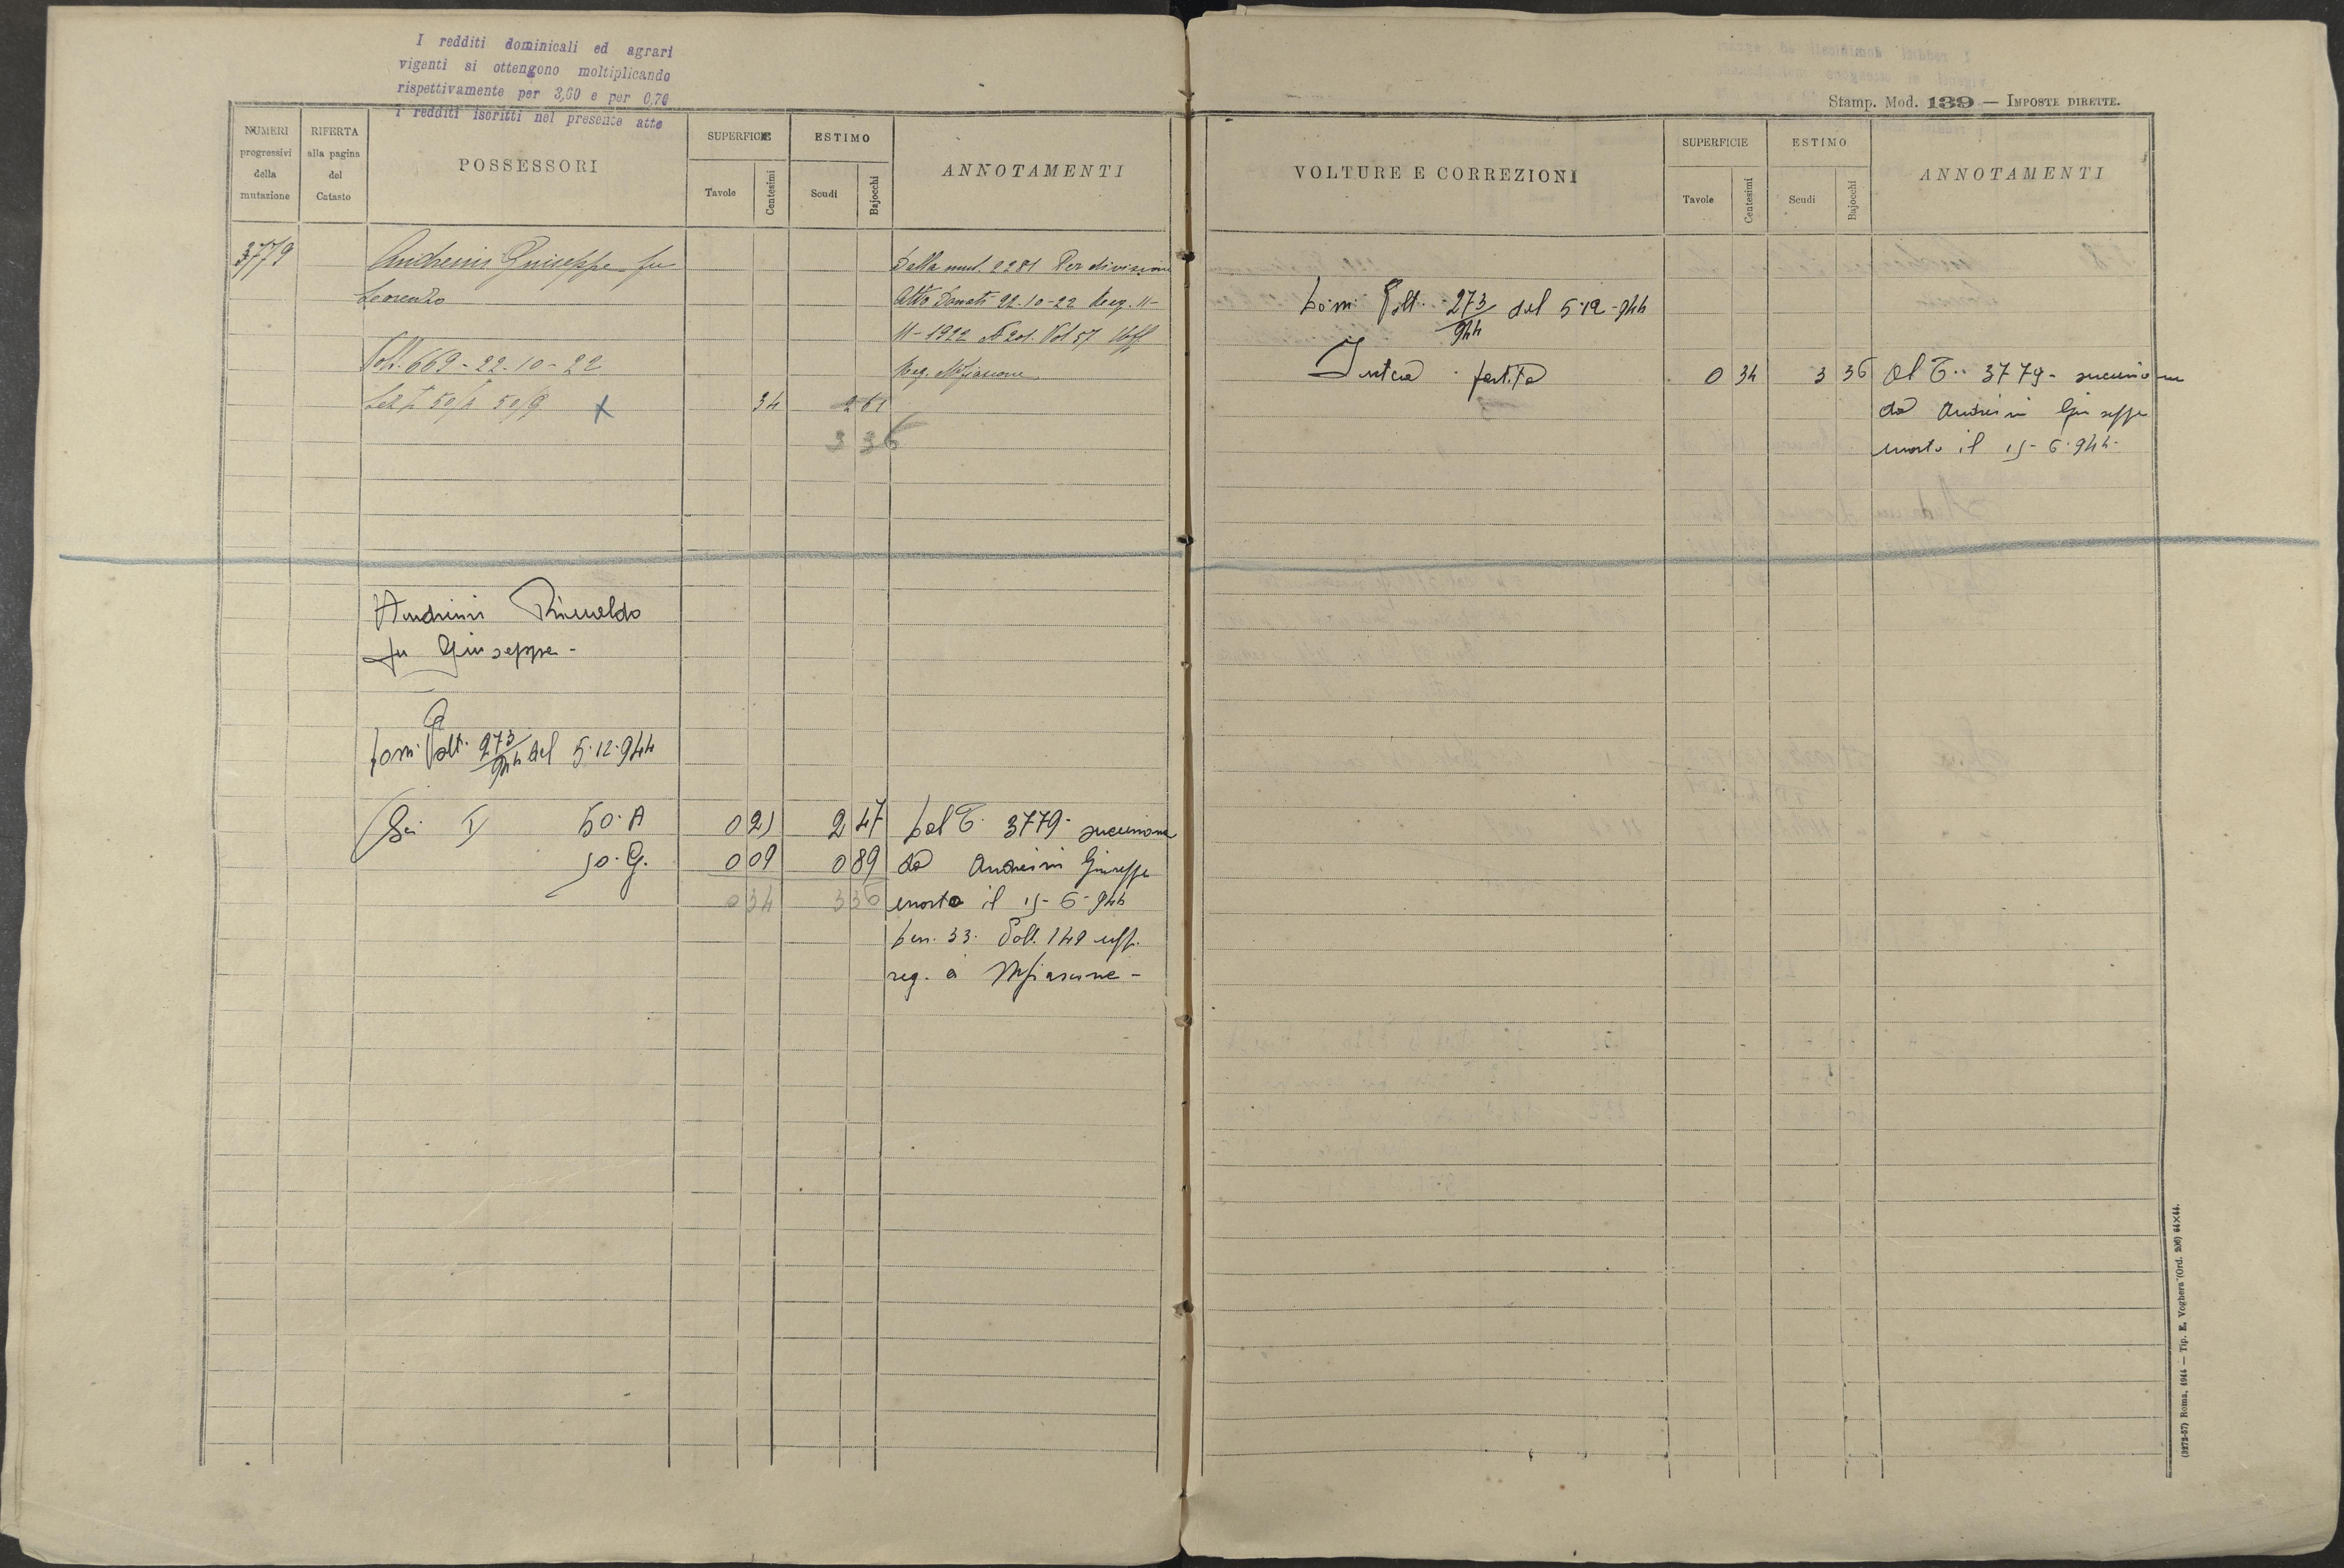 I redditi dominicali ed agrari
vigenti si ottengono moltiplicando
rispettivamente per 3,60 e per 0,70
i redditi iscritti nel presente atto
NUMERI progressivi della mutazione
RIFERTA alla pagina del Catasto
POSSESSORI
SUPERFICIE
Tavole
Centesimi
ESTIMO
Scudi
Bajocchi
ANNOTAMENTI
3779
Andreini Giuseppe fu
Lorenzo
Volt. 669-22-10-22
Sez I 50/A 50/G X
34
2 61
3 36
Dalla mut. 2281 Per divisione
Atto Donati 22-10-22 Reg. 11-
11-1922 N 201. Vol 57 Uff
Reg. Mfiascone
Andreini Rinaldo
fu Giuseppe -
Volt. 273/944 del 5.12.944
Sei I 50. A 0 25 2 47 Dal T. 3779- successione
50. G. 0 09 0 89 da Andreini Giuseppe
0 34 3 36 morto il 15-6-944
Den. 33. Vol. 149 uff.
reg. a Mfiascone -
Stamp. Mod. 139 — IMPOSTE DIRETTE.
VOLTURE E CORREZIONI
SUPERFICIE
Tavole
Centesimi
ESTIMO
Scudi
Bajocchi
ANNOTAMENTI
Volt. 273/944 del 5-12-944
Intera partita 0 34 3 36 Al T. 3779- successione
da Andreini Giuseppe
morto il 15-6-944-
(3272-57) Roma, 1914 — Tip. E. Voghera (Ord. 206) 64×44.